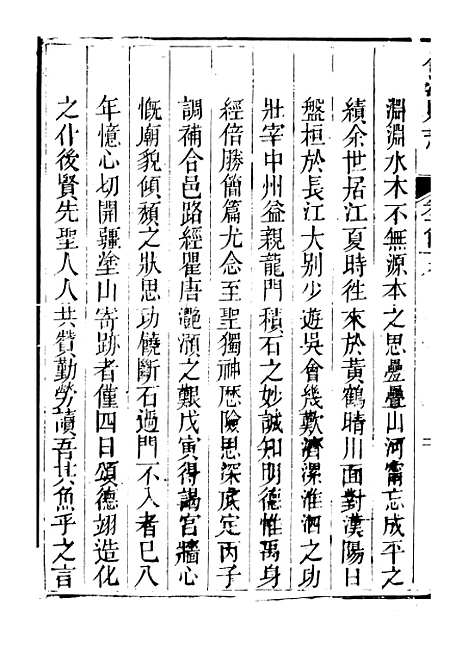 淵淵水木不無源本之思疊疊山河甯忘成平之
績余世居江夏時徃來於黃鶴晴川面對漢陽日
盤桓於長江大别少遊吳會幾歎濟漯淮泗之功
壯宰中州益親龍門積石之妙誠知明德惟禹身
經倍勝簡篇尤念至聖獨神歷險思深底定丙子
調補合邑路經瞿唐灔澦之艱戊寅得謁官牆心
慨廟貌傾頹之狀思功饒斷石過門不入者已八
年憶心切開疆塗山寄跡者僅四日頌德翊造化
之什後賢先聖人人共贊勤勞讀吾其魚乎之言